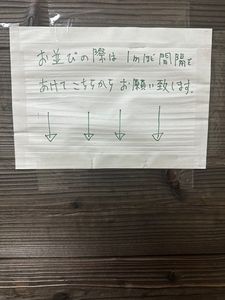 お並びの際は1mほど間隔を
あけてこちらからお願い致します。